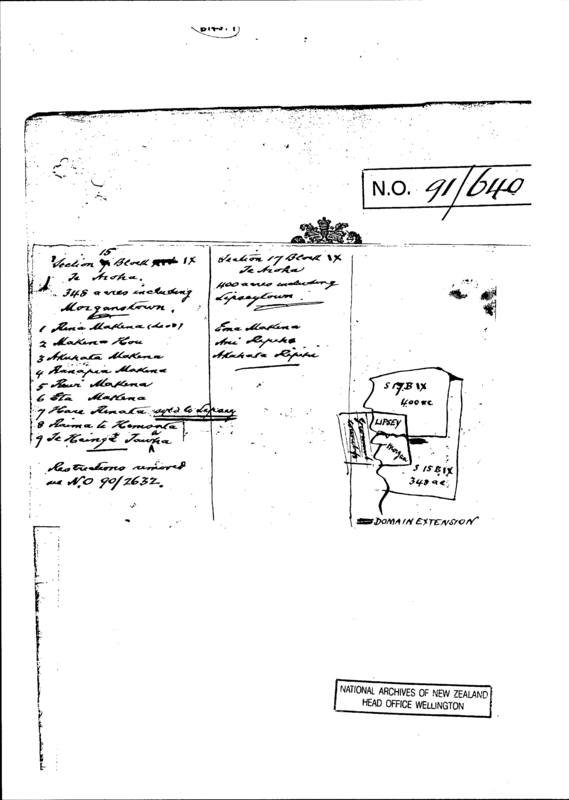 N.O. 91/640
Section 15 Block IX
Te Aroha.
348 acres including
Morgantown.
1 Rina Makena (dec'd)
2 Makena Hou
3 Akuhata Makena
4 Ranapia Makena
5 Rewi Makena
6 Eta Makena
7 Hare Renata sold to Lipsey
8 Raima te
9 Te
Restrictions removed
see N.O 90/2632.
Section 17 Block IX
Te Aroha
400 acres including
Lipseytown.
Ema Makena
Ani Ripihe
Akuhata Ripihe
S 17 B IX
400 ac
LIPSEY
Morgan
Township
S 15 B IX
348 ac
DOMAIN EXTENSION
NATIONAL ARCHIVES OF NEW ZEALAND
HEAD OFFICE WELLINGTON